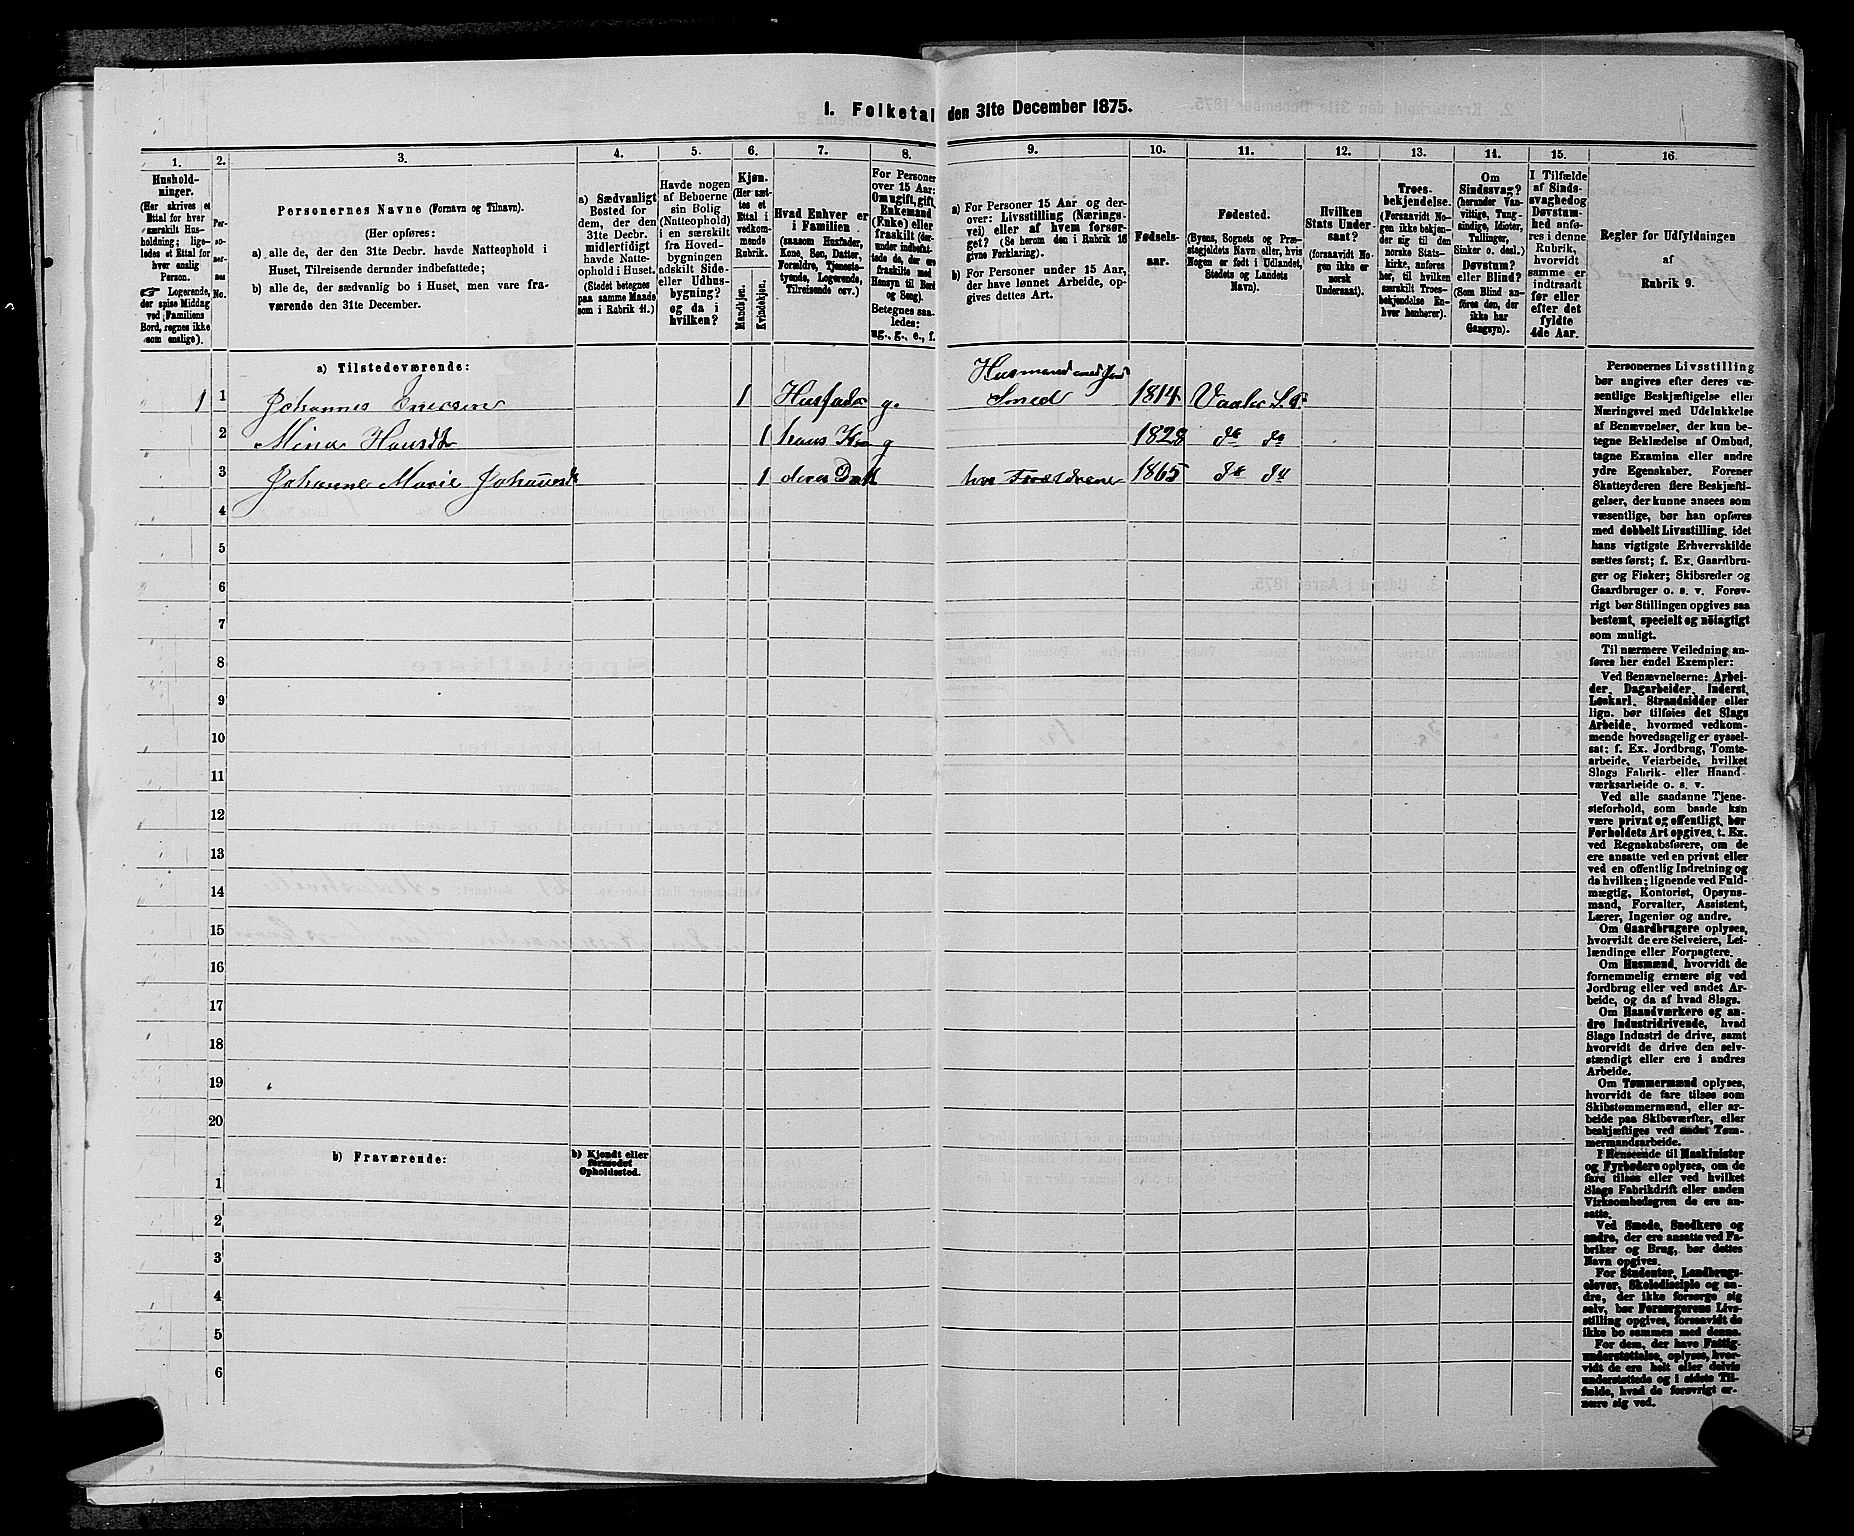 1. Folketal den 31te December 1875.
1. 2. 3. 4. 5. 6. 7. 8. 9. 10. 11. 12. 13. 14. 15. 16.
Hushold-
ninger.
(Her skrives et
Ettal for hver
særskilt Hus-
holdning; lige-
ledes et Ettal for
hver enslig
Person.
Logerende,
der spise Middag
ved Familiens
Bord, regnes ikke
som enslige).
Per-
so-
ner-
nes
No.
Personernes Navne (Fornavn og Tilnavn).
(Her opføres:
a) alle de, der den 31te Decbr. havde Natteophold i
Huset, Tilreisende derunder indbefattede;
b) alle de, der sædvanlig bo i Huset, men vare fra-
værende den 31te December.
a) Sædvanligt
Bosted for
dem, der den
31te Decbr.
midlertidigt
havde Natte-
ophold i Huset.
(Stedet betegnes
paa samme Maade
som i Rubrik 11.)
Havde nogen
af Beboerne
sin Bolig
(Natteophold)
i en særskilt
fra Hoved-
bygningen
adskilt Side-
eller Udhus-
bygning?
og da i
hvilken?
Kjøn.
(Her sæt-
tes et
Ettal i
vedkom-
mende
Rubrik.
Mandkjøn.
Kvindekjøn.
Hvad Enhver er
i Familien
(saasom Husfader,
Kone, Søn, Datter,
Forældre, Tjeneste-
tyende, Logerende,
Tilreisende osv.)
For Personer
over 15 Aar:
Om ugift, gift,
Enkemand
(Enke) eller
fraskilt (der-
under indbefat-
tede de, der ere
fraskilte med
Hensyn til Bord
og Seng).
Betegnes saa-
ledes:
ug., g., e., f.
a) For Personer 15 Aar og der-
over: Livsstilling (Nærings-
vei) eller af hvem forsør-
get? (Se herom den i Rubrik 16
givne Forklaring).
b) For Personer under 15 Aar,
der have lønnet Arbeide, op-
gives dettes Art.
Fødsels-
aar.
Fødested.
(Byens, Sognets og Præ-
stegjeldets Navn eller, hvis
Nogen er født i Udlandet,
Stedets og Landets
Navn).
Hvilken
Stats Under-
saat?
(forsaavidt No-
gen ikke er
norsk
Undersaat).
Troes-
bekjendelse.
(Forsaavidt No-
gen ikke bekjen-
der sig til den
norske Stats-
kirke, anføres
her, til hvilken
særskilt Troes-
bekjendelse En-
hver henhører).
Om
Sindssvag?
(herunder Van-
vittige, Tung-
sindige, Idioter,
Tullinger,
Sinker o. desl.)
Døvstum?
eller Blind?
(Som Blind an-
føres den, der
ikke har
Gangsyn).
I Tilfælde
af Sinds-
svaghed og
Døvstum-
hed anfø-
res i denne
Rubrik,
hvorvidt
samme er
indtraadt
før eller
efter det
fyldte
4de Aar.
Regler for Udfyldningen
af
Rubrik 9.
a) Tilstedeværende:
Husmand med Jord
1 1 Johannes Ericsen 1 Husfader g. Smed 1814 Vaaler S.P.
2 Mina Hansdtr 1 hans Kone g 1828 do do
3 Johanne Marie Johansdtr 1 deres Datt hos Forældrene 1865 do do
4
5
6
7
8
9
10
11
12
13
14
15
16
17
18
19
20
b) Fraværende:
b) Kjendt eller
formodet
Opholdssted.
1
2
3
4
5
6
Personernes Livsstilling
bør angives efter deres væ-
sentlige Beskjæftigelse eller
Næringsvei med Udelukkelse
af Benævnelser, der kun be-
tegne Beklædelse af Ombud,
tagne Examina eller andre
ydre Egenskaber. Forener
Skatteyderen flere Beskjæfti-
gelser, der kunne ansees som
væsentlige, bør han opføres
med dobbelt Livsstilling, idet
hans vigtigste Erhvervskilde
sættes først; f. Ex. Gaardbru-
ger og Fisker; Skibsreder og
Gaardbruger o. s. v. Forøv-
rigt bør Stillingen opgives saa
bestemt, specielt og nöiagtigt
som muligt.
Til nærmere Veiledning an-
føres her endel Exempler:
Ved Benævnelserne: Arbei-
der, Dagarbeider, Inderst,
Løskarl, Strandsidder eller
lign. bør tilføies det Slags
Arbeide, hvormed vedkom-
mende hovedsagelig er syssel-
sat; f. Ex. Jordbrug, Tomte-
arbeide, Veiarbeide, hvilket
Slags Fabrik- eller Haand-
værksarbeide o. s. v.
Ved alle saadanne Tjene-
steforhold, som baade kan
være privat og offentligt, bør
Forholdets Art opgives, t. Ex.
ved Regnskabsførere, om de
ere ansatte ved en privat eller
ved en offentlig Indretning og
da hvilken; lignende ved Fuld-
mægtig, Kontorist, Opsyns-
mand, Forvalter, Assistent,
Lærer, Ingeniør og andre.
Om Gaardbrugere oplyses,
hvorvidt de ere Selveiere, Lei-
lændinge eller Forpagtere.
Om Husmænd, hvorvidt de
fornemmelig ernære sig ved
Jordbrug eller ved andet Ar-
beide, og da af hvad Slags.
Om Haandværkere og an-
dre Industridrivende, hvad
Slags Industri de drive, samt
hvorvidt de drive den selv-
stændigt eller ere i andres
Arbeide.
Om Tømmermænd oplyses,
hvorvidt de fare tilsøs som
Skibstømmermænd, eller ar-
beide paa Skibsværfter, eller
beskjæftiges ved andet Tøm-
mermandsarbeide.
I Henseende til Maskinister
og Fyrbødere oplyses, om de
fare tilsøs eller ved hvilket
Slags Fabrikdrift eller anden
Virksomhedsgren de ere an-
satte.
Ved Smede, Snedkere og
andre, der ere ansatte ved Fa-
briker og Brug, bør dettes
Navn opgives.
For Studenter, Landbrugs-
elever, Skoledisciple og an-
dre, der ikke forsørge sig
selv, bør Forsørgerens Livs-
stilling opgives, forsaavidt de
ikke bo sammen med denne.
For dem, der have Fattig-
understøttelse, oplyses, hvor-
vidt de ere helt eller delvis
understøttede og i sidste Til-
fælde, hvad de forøvrigt er-
nære sig ved.